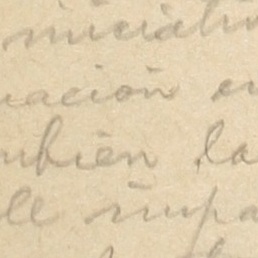 iniciativ
uación en
mbién la
ll impa